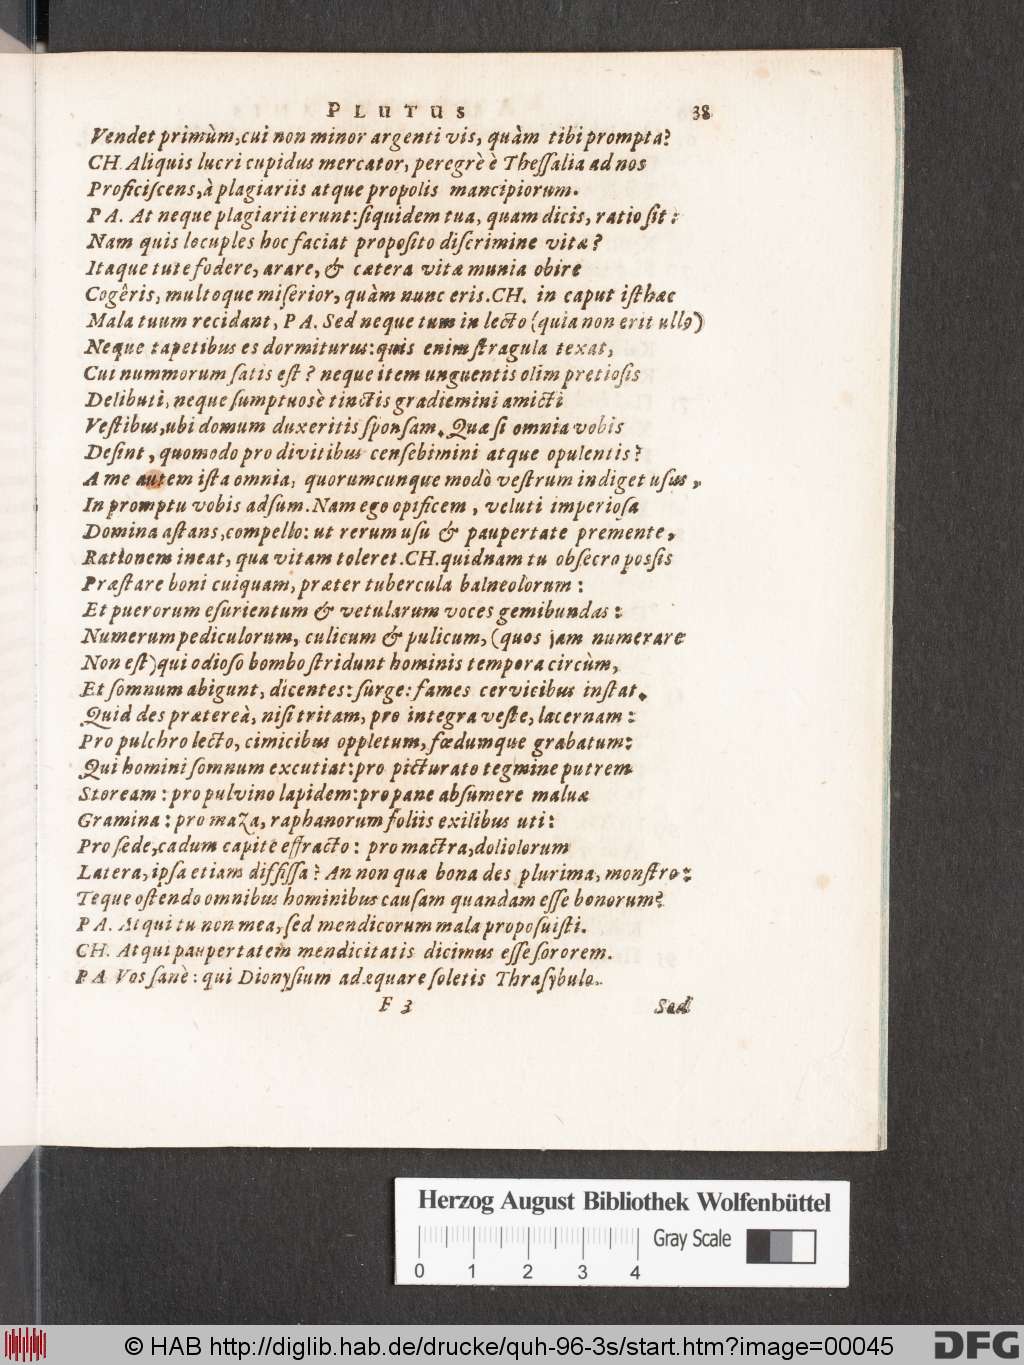 PLUTUS 38
Vendet primùm, cui non minor argenti vis, quàm tibi prompta?
CH. Aliquis lucri cupidus mercator, peregrè è Theſſalia ad nos
Proficiſcens, à plagiariis atque propolis mancipiorum.
PA. At neque plagiarii erunt: ſiquidem tua, quam dicis, ratio ſit:
Nam quis locuples hoc faciat propoſito diſcrimine vitæ?
Itaque tute fodere, arare, & cætera vitæ munia obire
Cogêris, multoque miſerior, quàm nunc eris. CH. in caput iſthæc
Mala tuum recidant, PA. Sed neque tum in lecto (quia non erit ullo)
Neque tapetibus es dormiturus: quis enim ſtragula texat,
Cui nummorum ſatis eſt? neque item unguentis olim pretioſis
Delibuti, neque ſumptuosè tinctis gradiemini amicti
Veſtibus, ubi domum duxeritis ſponſam. Quæ ſi omnia vobis
Deſint, quomodo pro divitibus cenſebimini atque opulentis?
A me autem iſta omnia, quorumcunque modò veſtrum indiget uſus,
In promptu vobis adſum. Nam ego opificem, veluti imperioſa
Domina aſtans, compello: ut rerum uſu & paupertate premente,
Rationem ineat, qua vitam toleret. CH. quidnam tu obſecro poſſis
Præſtare boni cuiquam, præter tubercula balneolorum:
Et puerorum eſurientum & vetularum voces gemibundas:
Numerum pediculorum, culicum & pulicum, (quos jam numerare
Non eſt) qui odioſo bombo ſtridunt hominis tempora circùm,
Et ſomnum abigunt, dicentes: ſurge: fames cervicibus inſtat.
Quid des prætereà, niſi tritam, pro integra veſte, lacernam:
Pro pulchro lecto, cimicibus oppletum, fœdumque grabatum:
Qui homini ſomnum excutiat: pro picturato tegmine putrem
Storeaam: pro pulvino lapidem: pro pane abſumere malvæ
Gramina: pro maza, raphanorum foliis exilibus uti:
Pro ſede, cadum capite effracto: pro mactra, doliolorum
Latera, ipſa etiam diffiſſa? An non quæ bona des plurima, monſtro:
Teque oſtendo omnibus hominibus cauſam quandam eſſe bonorum?
PA. Atqui tu non mea, ſed mendicorum mala propoſuiſti.
CH. Atqui paupertatem mendicitatis dicimus eſſe ſororem.
PA Vos ſanè: qui Dionyſium adæquare ſoletis Thraſybulo.
F 3 Sed
Herzog August Bibliothek Wolfenbüttel
Gray Scale
0 1 2 3 4
© HAB http://diglib.hab.de/drucke/quh-96-3s/start.htm?image=00045
DFG